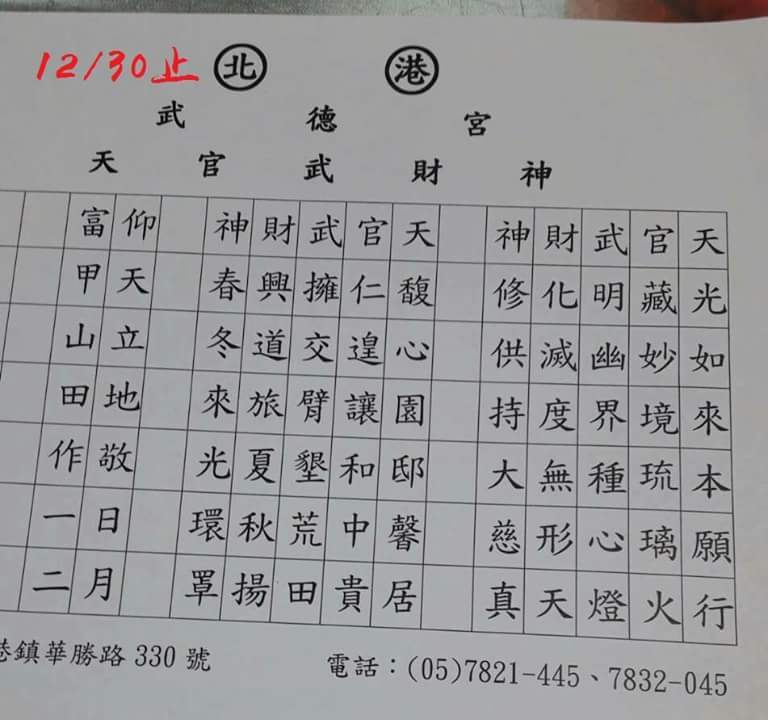 12/30止 北 港
武 德 宮
天 官 武 財 神
天光如來本願行
官藏妙境琉璃火
武明幽界種心燈
財化滅度無形天
神修供持大慈真
天馥心園邸馨居
官仁遑讓和中貴
武擁交臂墾荒田
財興道旅夏秋揚
神春冬來光環罩
仰天立地敬日月
富甲山田作一二
港鎮華勝路 330 號 電話：(05)7821-445、7832-045